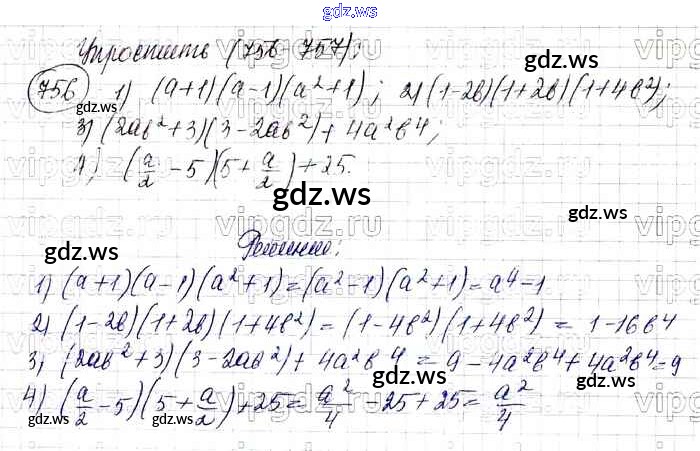 gdz.ws
Упростить (756-757):
756 1) (a+1)(a-1)(a²+1); 2) (1-2b)(1+2b)(1+4b²);
3) (2ab²+3)(3-2ab²)+4a²b⁴;
4) (a/2 -5)(5+ a/2)+25.
Решение:
1) (a+1)(a-1)(a²+1)=(a²-1)(a²+1)=a⁴-1
2) (1-2b)(1+2b)(1+4b²)=(1-4b²)(1+4b²)=1-16b⁴
3) (2ab²+3)(3-2ab²)+4a²b⁴=9-4a²b⁴+4a²b⁴=9
4) (a/2 -5)(5+ a/2)+25= a²/4 -25+25= a²/4
gdz.ws
vipgdz.ws